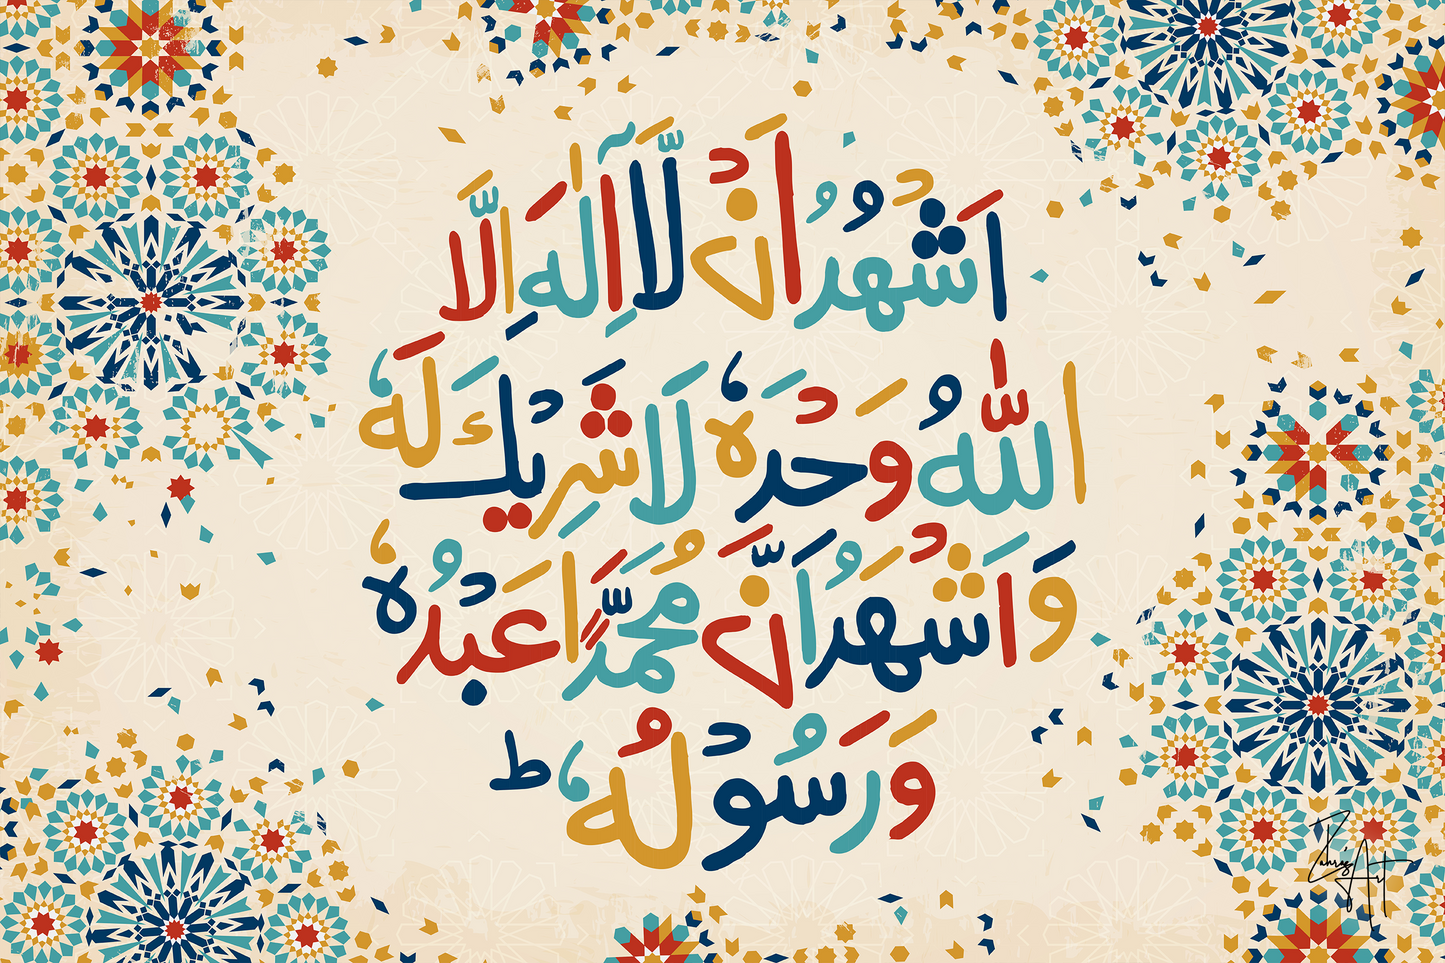 اَشْهَدُ اَنْ لَّآ اِلٰهَ اِلَّا
اللّٰهُ وَحْدَهٗ لَا شَرِيْكَ لَهٗ
وَاَشْهَدُ اَنَّ مُحَمَّدًا عَبْدُهٗ
وَرَسُوْلُهٗ ط
Zahra's Art